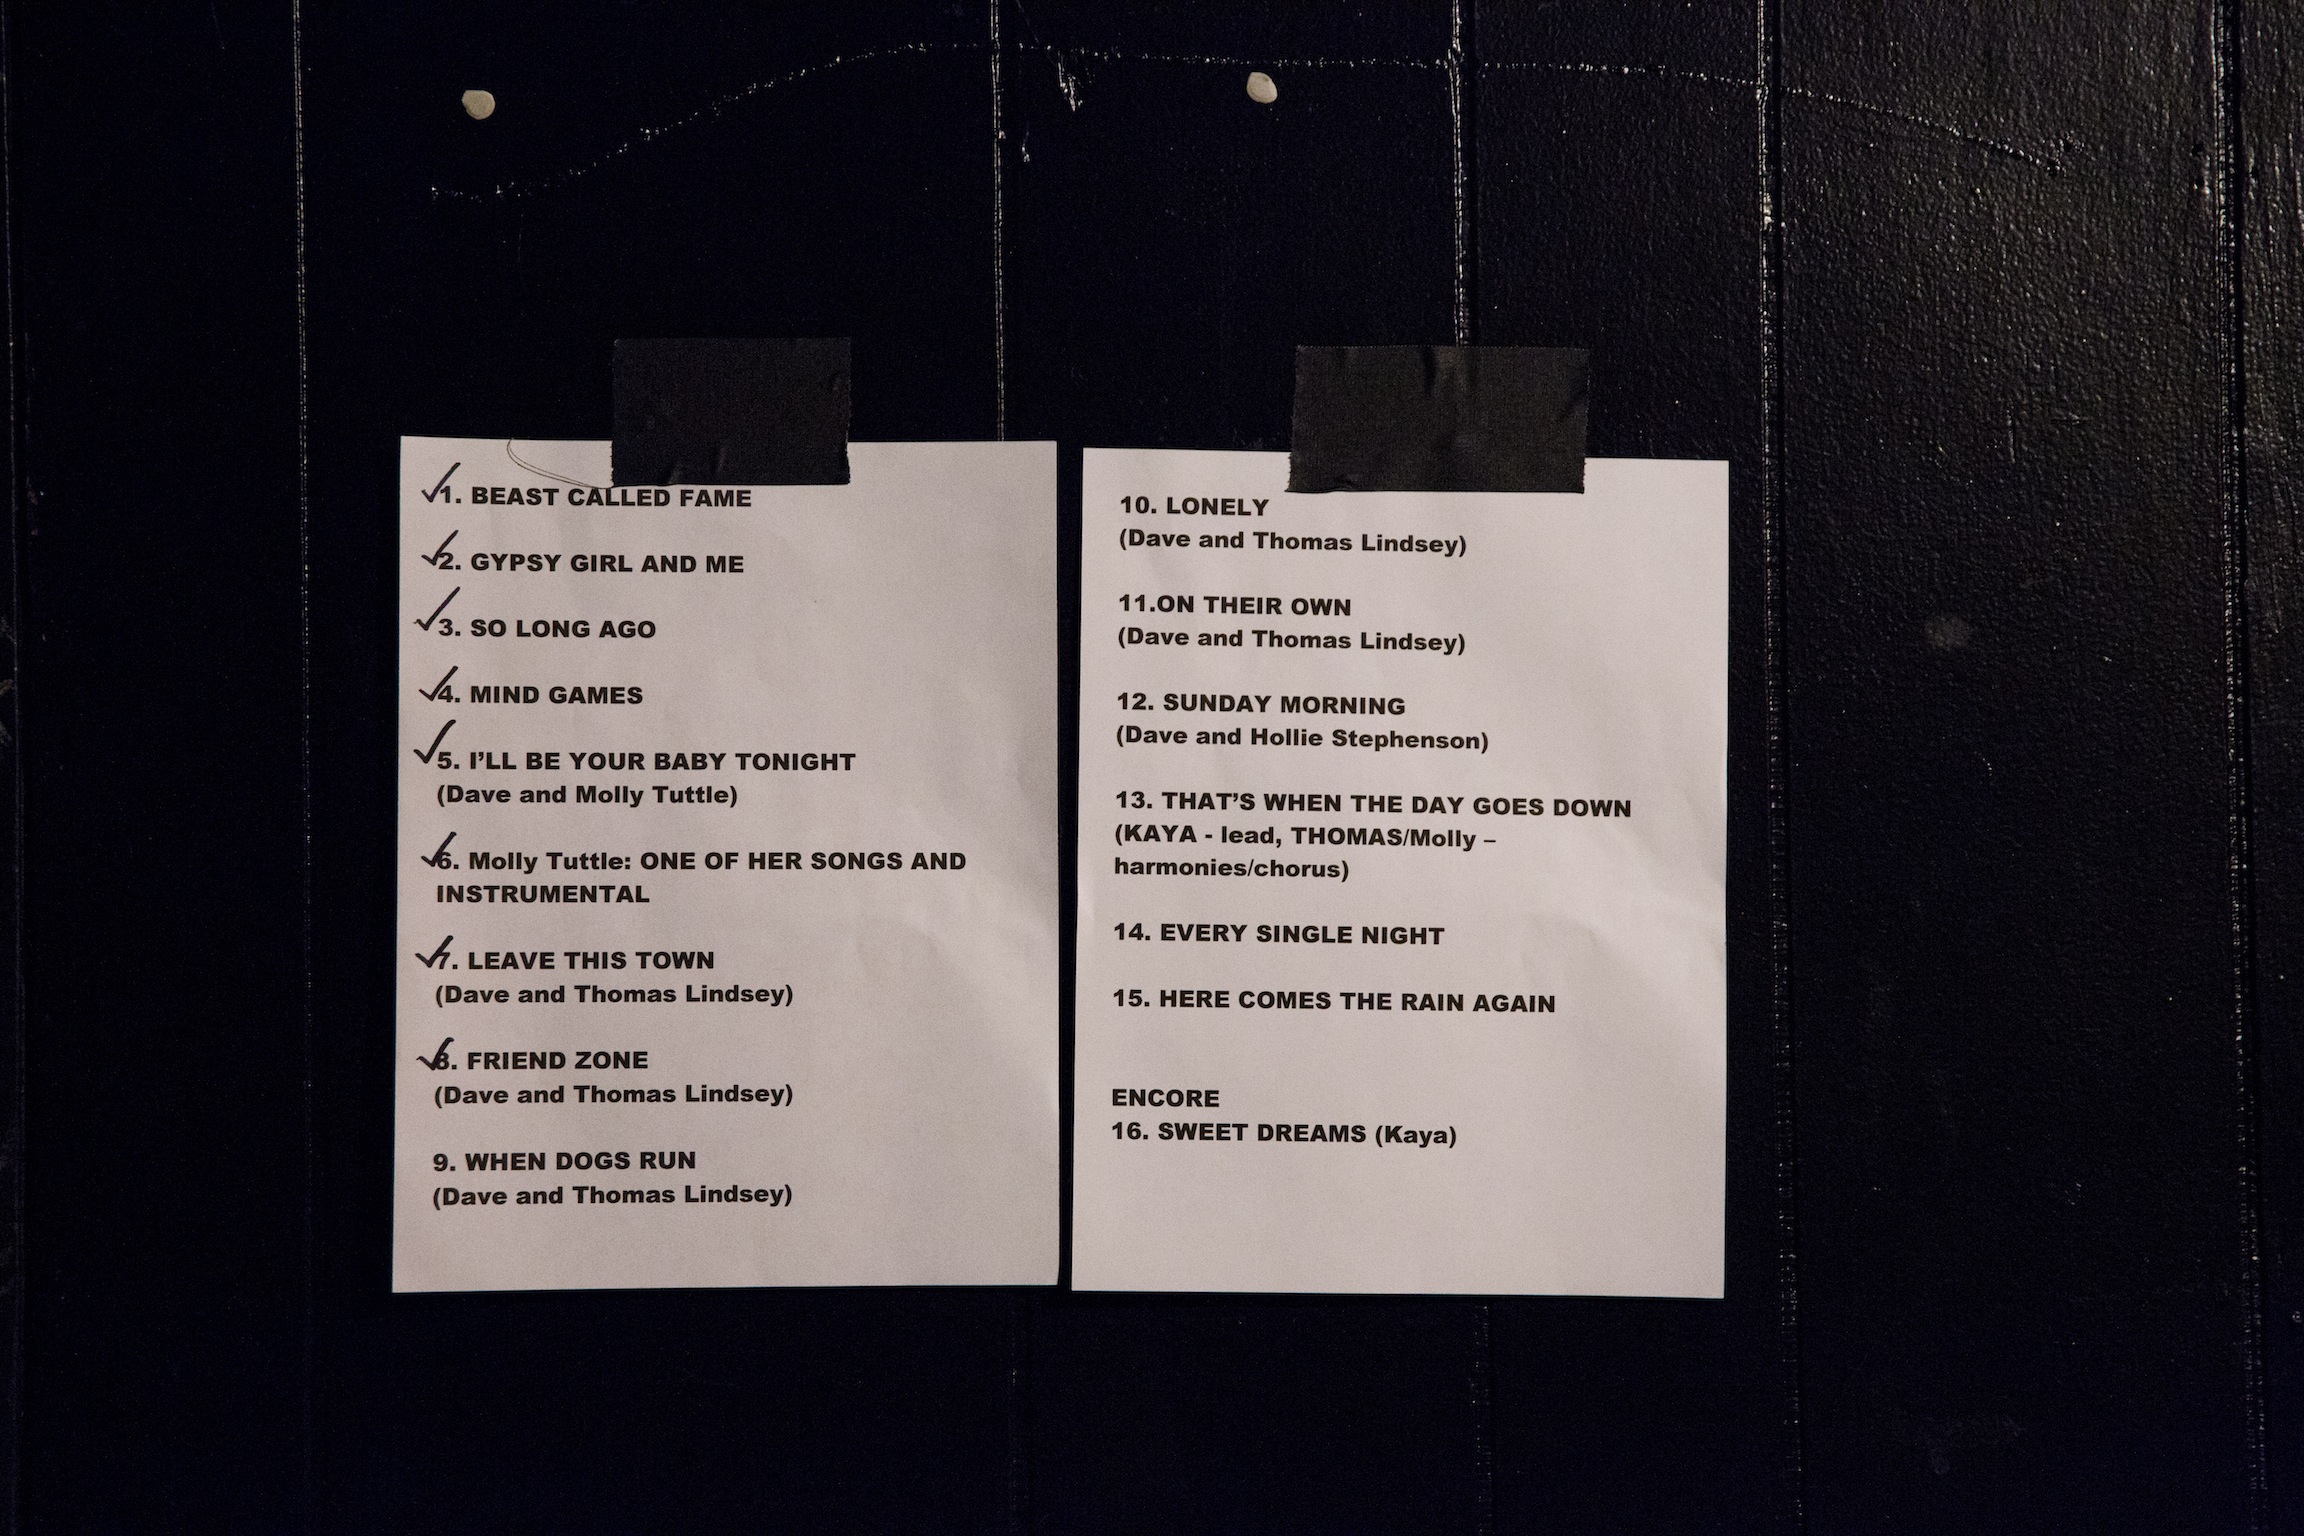 1. BEAST CALLED FAME
2. GYPSY GIRL AND ME
3. SO LONG AGO
4. MIND GAMES
5. I’LL BE YOUR BABY TONIGHT
(Dave and Molly Tuttle)
6. Molly Tuttle: ONE OF HER SONGS AND
INSTRUMENTAL
7. LEAVE THIS TOWN
(Dave and Thomas Lindsey)
8. FRIEND ZONE
(Dave and Thomas Lindsey)
9. WHEN DOGS RUN
(Dave and Thomas Lindsey)
10. LONELY
(Dave and Thomas Lindsey)
11.ON THEIR OWN
(Dave and Thomas Lindsey)
12. SUNDAY MORNING
(Dave and Hollie Stephenson)
13. THAT’S WHEN THE DAY GOES DOWN
(KAYA - lead, THOMAS/Molly –
harmonies/chorus)
14. EVERY SINGLE NIGHT
15. HERE COMES THE RAIN AGAIN
ENCORE
16. SWEET DREAMS (Kaya)